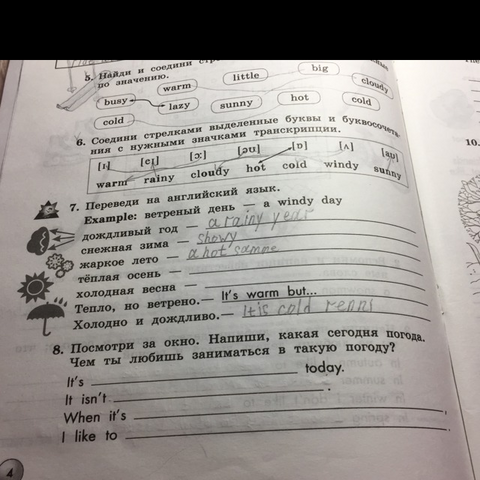 5. Найди и соедини
по значению.
big
little
warm
cloudy
busy
lazy
sunny
hot
cold
cold
6. Соедини стрелками выделенные буквы и буквосочета-
ния с нужными значками транскрипции.
[ɪ] [eɪ] [ɔ:] [əʊ] [ɒ] [ʌ] [aʊ]
warm rainy cloudy hot cold windy sunny
7. Переведи на английский язык.
Example: ветреный день — a windy day
дождливый год — a rainy year
снежная зима — showy
жаркое лето — a hot samme
тёплая осень —
холодная весна —
Тепло, но ветрено. — It's warm but...
Холодно и дождливо. — It is cold
8. Посмотри за окно. Напиши, какая сегодня погода.
Чем ты любишь заниматься в такую погоду?
It's today.
It isn't .
When it's ,
I like to .
4
10.